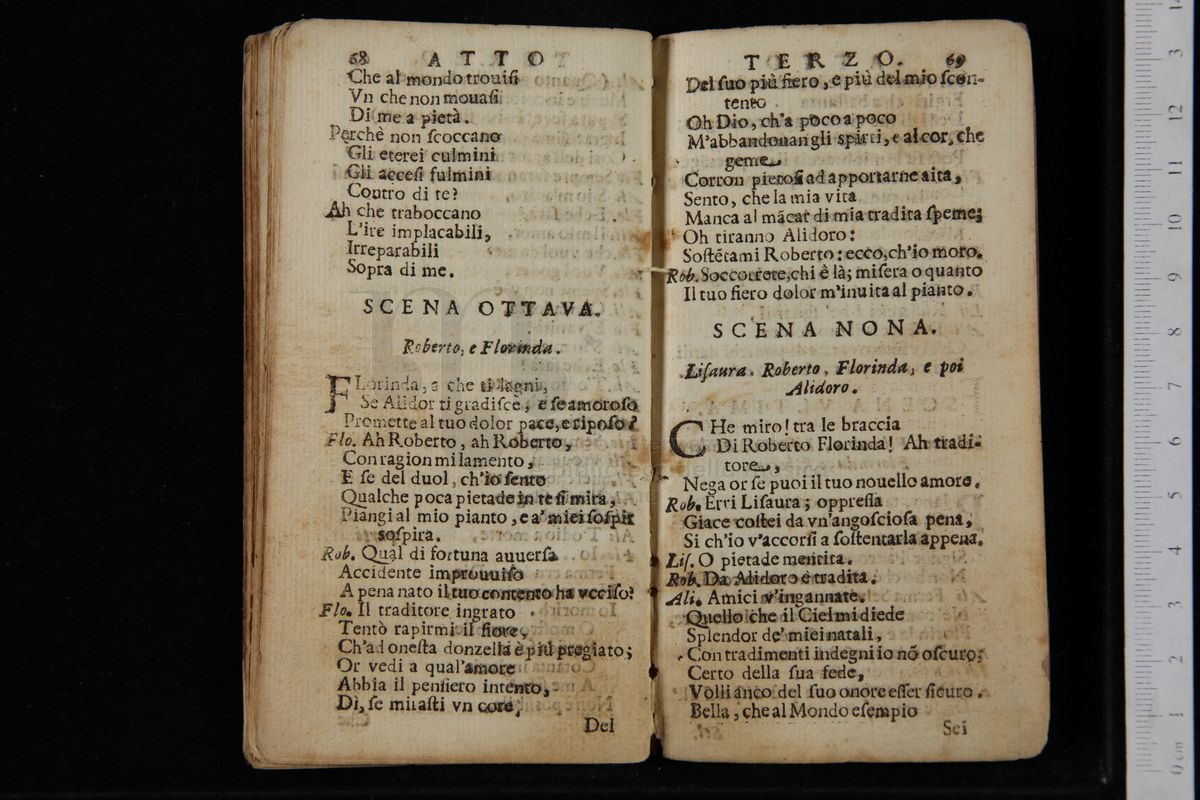 68 ATTO
Che al mondo trouisi
Vn che non mouasi
Di me a pietà.
Perchè non ſcoccano
Gli eterei culmini
Gli acceſi fulmini
Contro di te?
Ah che traboccano
L'ire implacabili,
Irreparabili
Sopra di me.
SCENA OTTAVA.
Roberto, e Florinda.
FLorinda, a che ti lagni,
Se Alidor ti gradiſce, e ſe amoroſo
Promette al tuo dolor pace, e ripoſo?
Flo. Ah Roberto, ah Roberto,
Con ragion mi lamento,
E ſe del duol, ch'io ſento
Qualche poca pietade in te ſi mira,
Piangi al mio pianto, e a' miei ſoſpir
soſpira.
Rob. Qual di fortuna auuerſa
Accidente improuuiſo
A pena nato il tuo contento ha vcciſo?
Flo. Il traditore ingrato
Tentò rapirmi il fiore,
Ch'ad oneſta donzella è più pregiato;
Or vedi a qual'amore
Abbia il penſiero intento,
Dì, ſe miraſti vn core,
Del
TERZO. 69
Del ſuo più fiero, e più del mio ſcon-
tento
Oh Dio, ch'a poco a poco
M'abbandonan gli spirti, e al cor, che
geme
Corron pietoſi ad apportarne aita,
Sento, che la mia vita
Manca al mācar di mia tradita ſpeme;
Oh tiranno Alidoro:
Soſtētami Roberto: ecco, ch'io moro.
Rob. Soccorrete, chi è là; miſera o quanto
Il tuo fiero dolor m'inuita al pianto.
SCENA NONA.
Liſaura. Roberto, Florinda, e poi
Alidoro.
CHe miro! tra le braccia
Di Roberto Florinda! Ah tradi-
tore,
Nega or ſe puoi il tuo nouello amore.
Rob. Erri Liſaura; oppreſſa
Giace coſtei da vn'angoſcioſa pena,
Si ch'io v'accorſi a ſoſtentarla appena.
Liſ. O pietade mentita.
Rob. Da Alidoro è tradita.
Ali. Amici v'ingannate.
Quello che il Ciel mi diede
Splendor de' miei natali,
Con tradimenti indegni io nō oſcuro;
Certo della ſua fede,
Volli anco del ſuo onore eſſer ſicuro.
Bella, che al Mondo eſempio
Sei